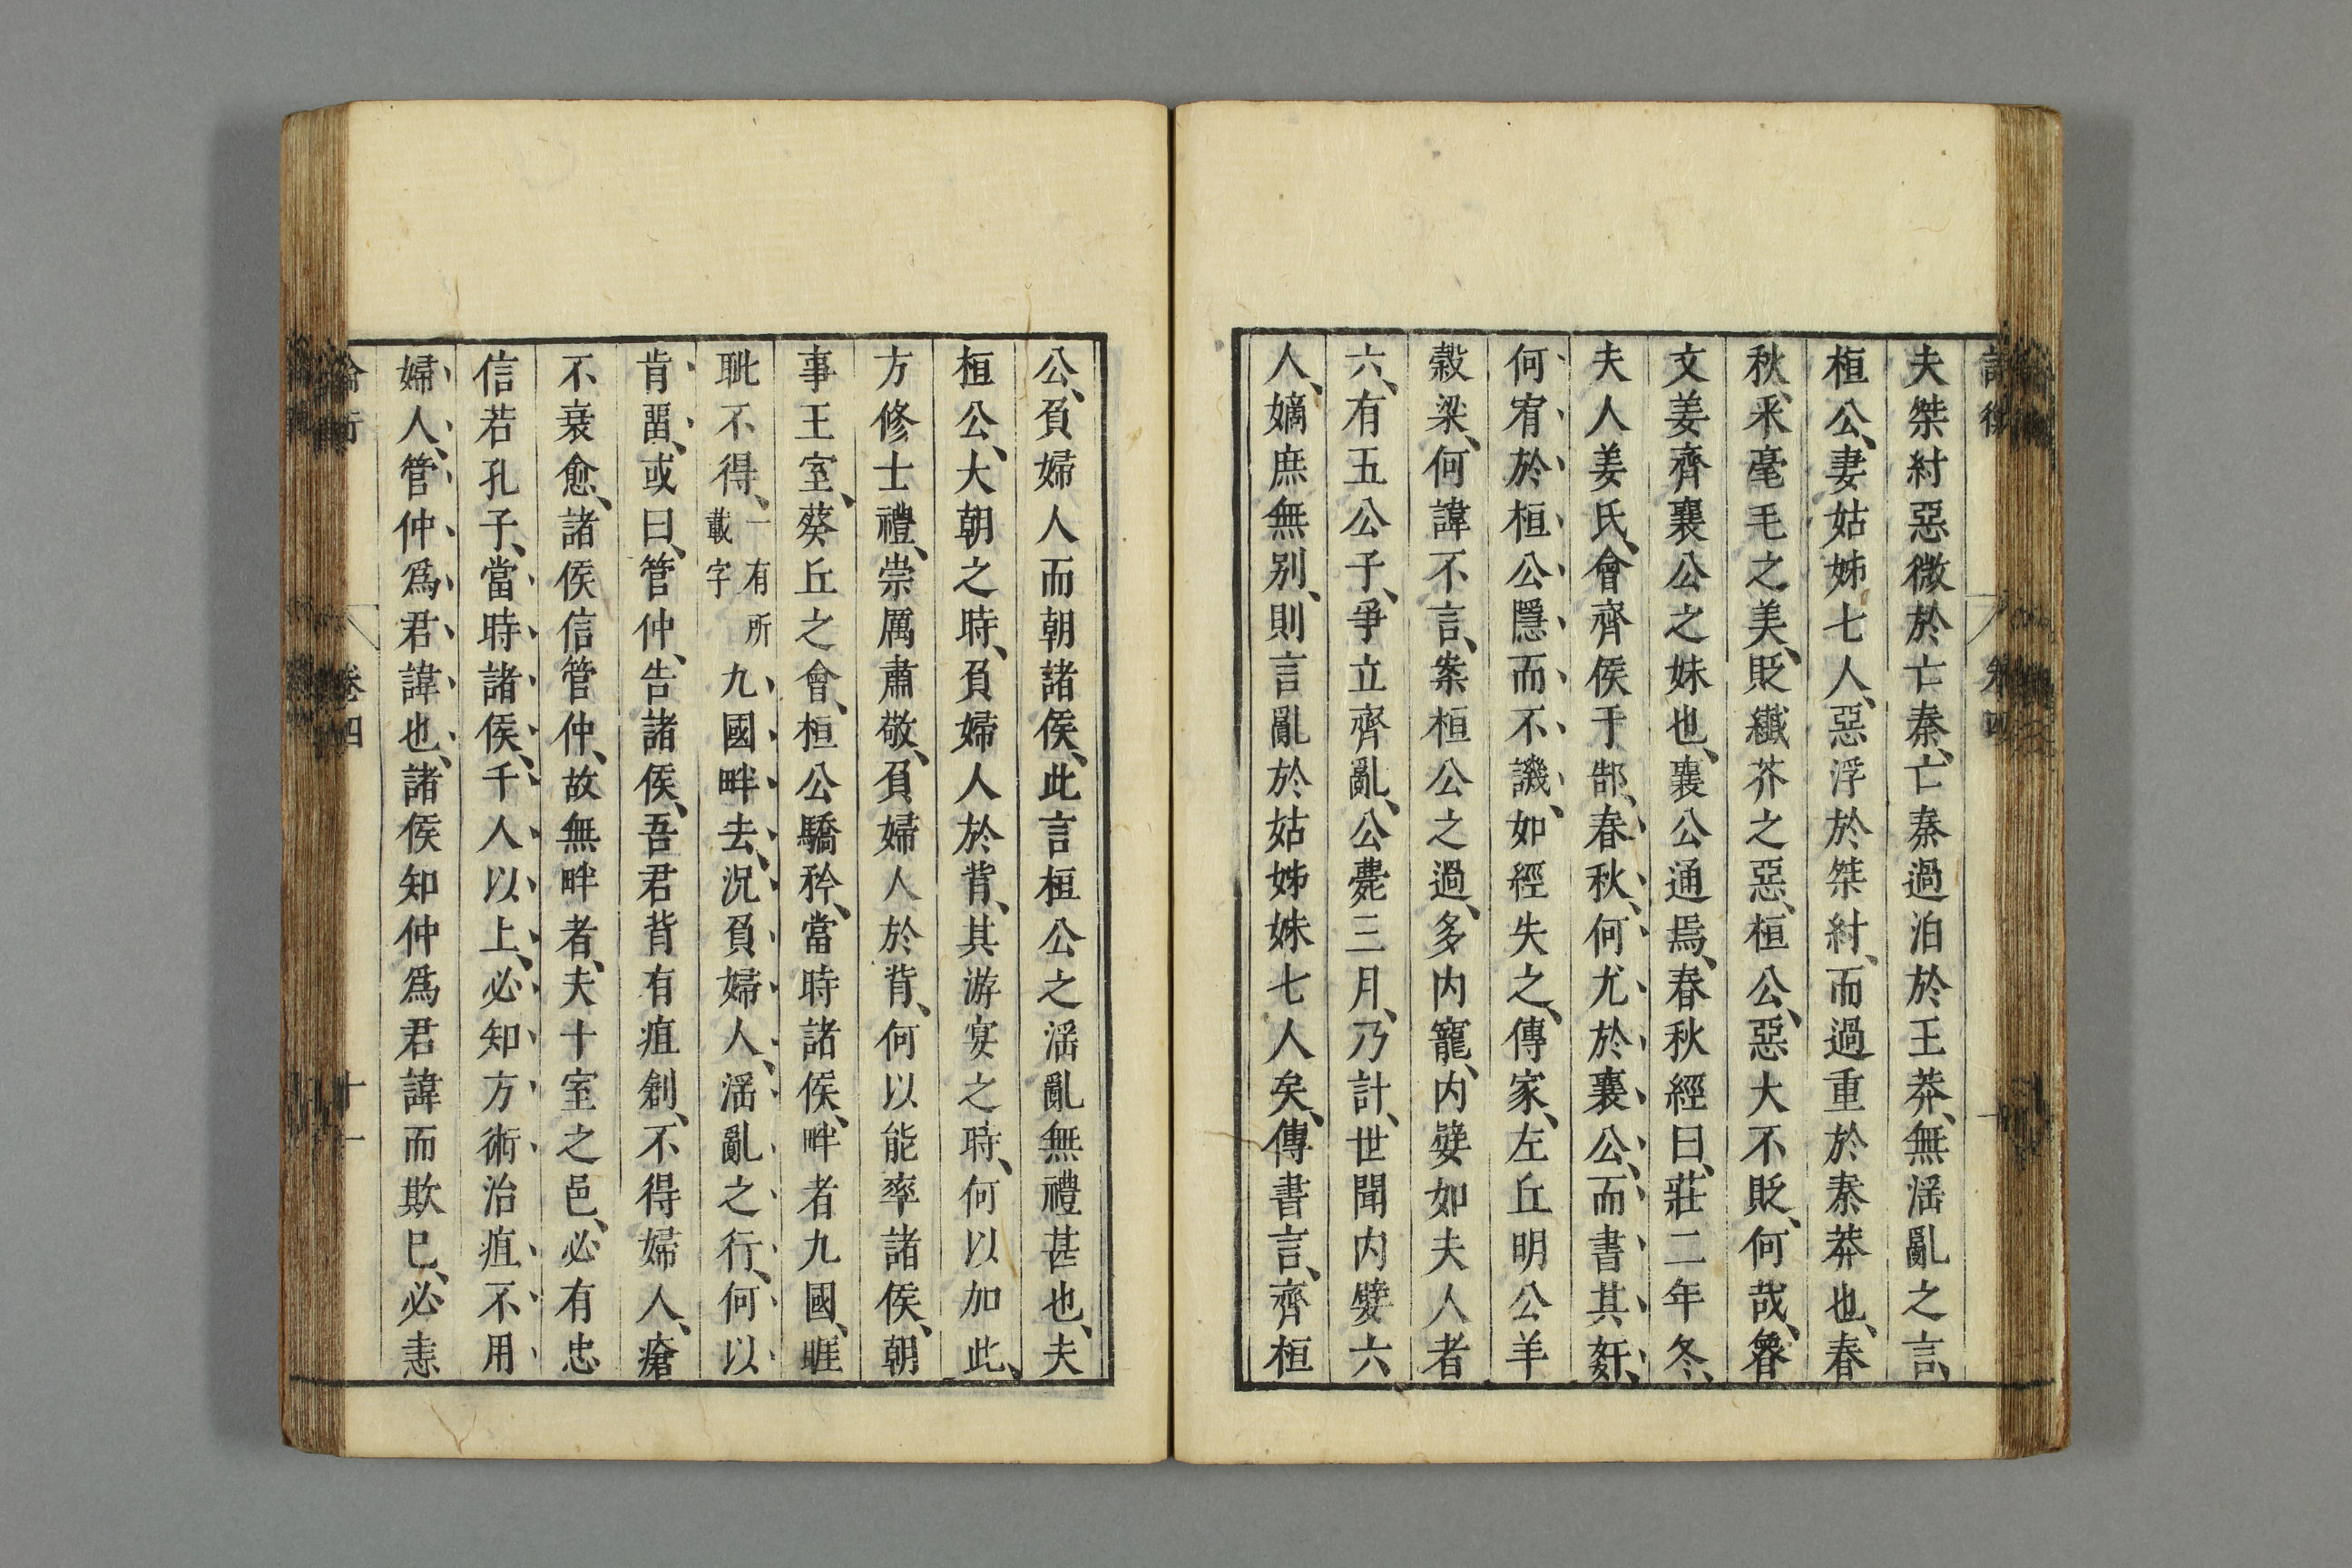 夫桀紂惡微於亡秦、亡秦過泊於王莽、無滛亂之言、
桓公、妻姑姊七人、惡浮於桀紂、而過重於秦莽也、春
秋、采毫毛之美、貶纖芥之惡、桓公、惡大不貶、何哉、魯
文姜齊襄公之妹也、襄公通焉、春秋經曰、莊二年冬、
夫人姜氏、會齊侯于郜、春秋、何尤於襄公、而書其姧、
何宥於桓公、隱而不譏、如經失之、傳家、左丘明公羊
榖梁、何諱不言、案桓公之過、多内寵、内嬖如夫人者
六、有五公子、爭立齊亂、公薨三月、乃訃、世聞内嬖六
人、嫡庶無别、則言亂於姑姊妹七人矣、傳書言、齊桓
公、負婦人而朝諸侯、此言桓公之滛亂無禮甚也、夫
桓公、大朝之時、負婦人於背、其游宴之時、何以加此、
方修士禮、崇厲肅敬、負婦人於背、何以能率諸侯、朝
事王室、葵丘之會、桓公驕矜、當時諸侯、畔者九國、睚
眦不得、一有所載字九國畔去、況負婦人、滛亂之行、何以
肯畱、或曰、管仲、告諸侯、吾君背有疽創、不得婦人、瘡
不衰愈、諸侯信管仲、故無畔者、夫十室之邑、必有忠
信若孔子、當時諸侯、千人以上、必知方術治疽、不用
婦人、管仲爲君諱也、諸侯知仲爲君諱而欺己、必恚
論行
卷四
十一